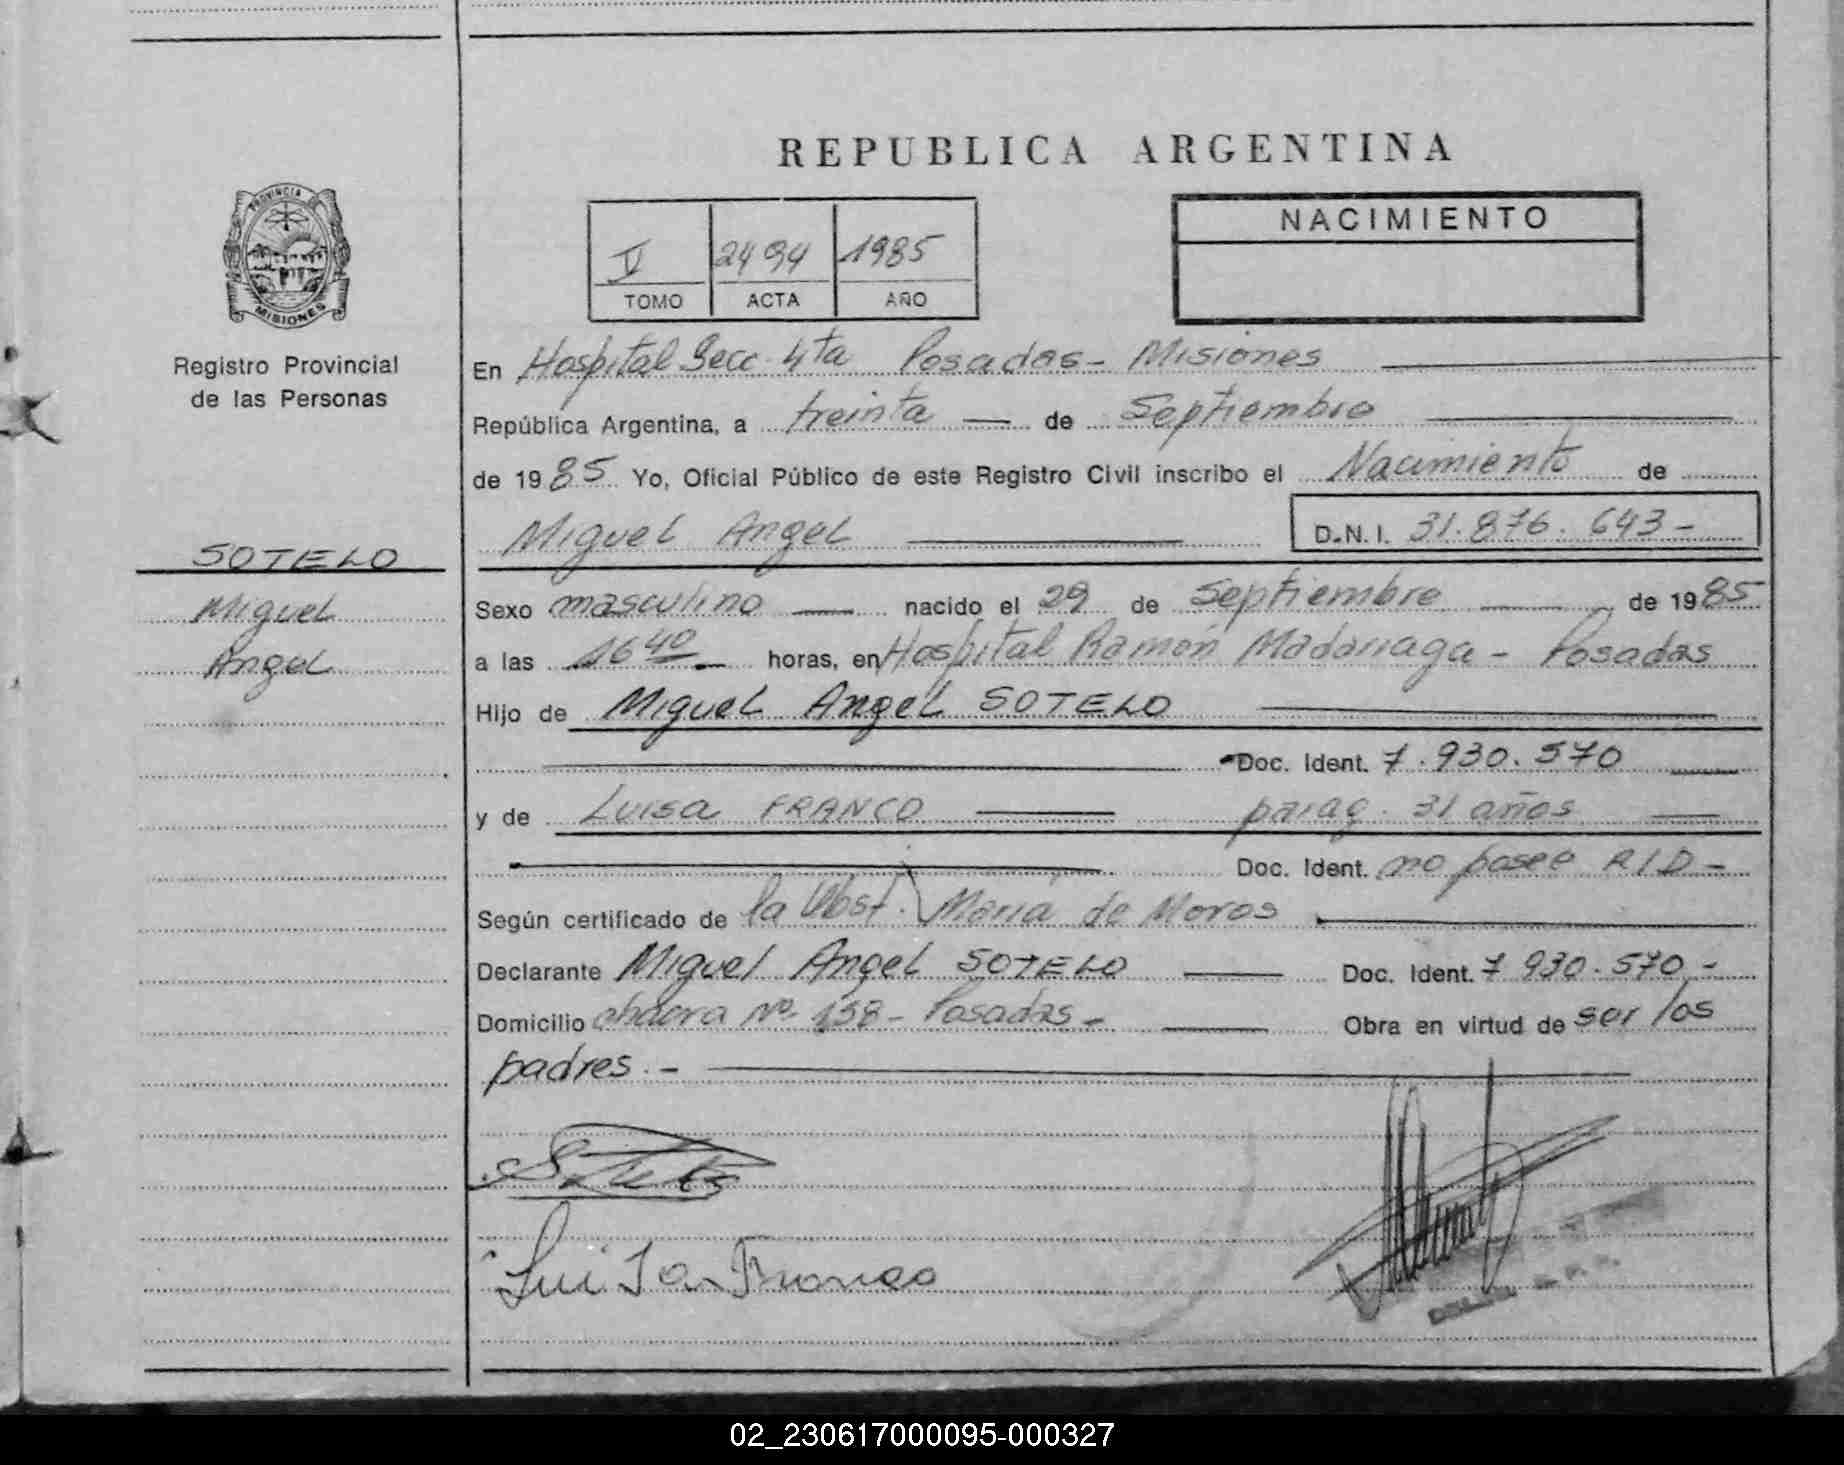 REPUBLICA ARGENTINA
PROVINCIA DE
MISIONES
Registro Provincial
de las Personas
V 2494 1985
TOMO ACTA AÑO
NACIMIENTO
En Hospital Secc. 4ta Posadas - Misiones
República Argentina, a treinta de Septiembre
de 1985 Yo, Oficial Público de este Registro Civil inscribo el Nacimiento de
Miguel Angel D.N.I. 31.876.643-
SOTELO
Miguel
Angel
Sexo masculino nacido el 29 de Septiembre de 1985
a las 16 40 horas, en Hospital Ramón Madariaga - Posadas
Hijo de Miguel Angel SOTELO
Doc. Ident. 7.930.570
y de Luisa FRANCO parag. 31 años
Doc. Ident. no posee R/D -
Según certificado de la Obst. María de Moros
Declarante Miguel Angel SOTELO Doc. Ident. 7 930.570 -
Domicilio Nº 158 - Posadas - Obra en virtud de ser los
padres . -
Sotelo
Luisa Franco
02_230617000095-000327